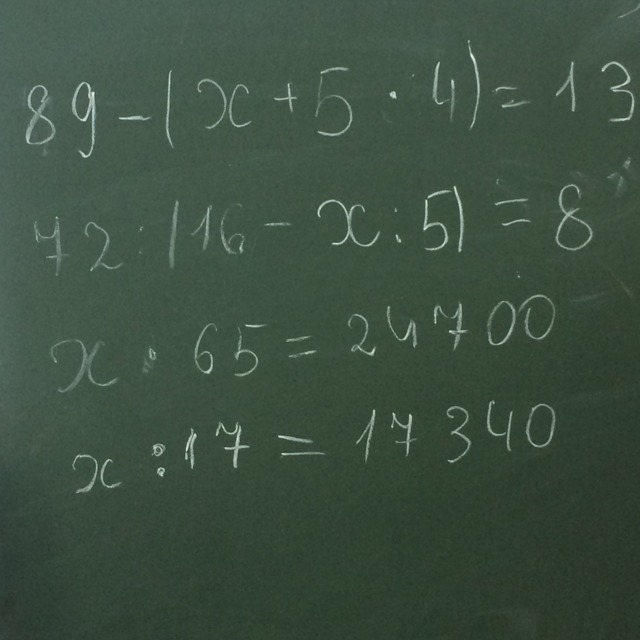 89-(x+5·4)=13
72:(16-x:5)=8
x·65=24700
x:17=17340